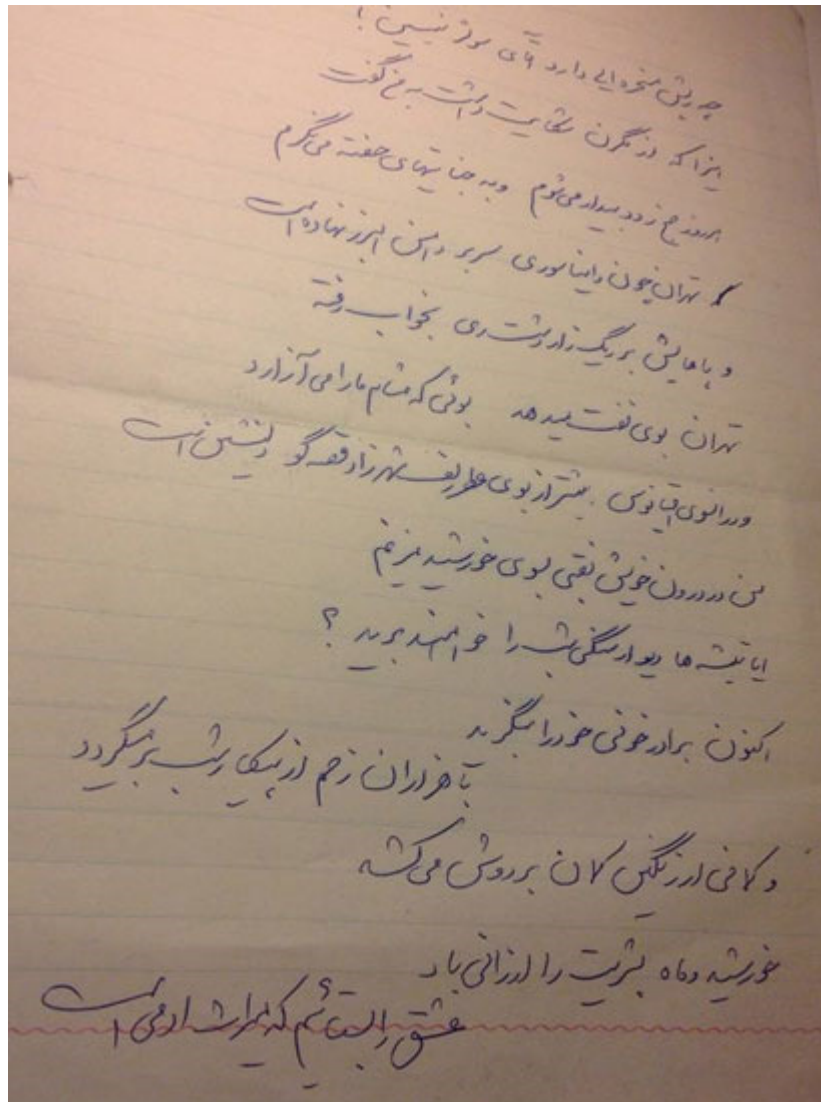 چه ریش مسخره ایی دارد آقای
اینرا که از نگرن شکایت داشت به من گفت
امروز صبح زود بیدار می شوم و به جنایتهای خفته می نگرم
تهران چون دایناسوری سر بر دامن البرز نهاده است
و پاهایش بر ریگ زار بخواب رفته
تهران بوی نفت میدهد بوئی که مشام ما را می آزارد
و در آنسوی اقیانوس بیشتر از بوی عطر زلف شهرزاد قصه گو دلنشین است
من در درون خویش نقبی بسوی خورشید میزنم
ایا تیشه ها دیوار سنگی شب را خواهند برید ؟
اکنون برادر خونی خود را بنگرید
با هزاران زخم از پیکار شب بر میگردد
و کمانی از رنگین کمان بر دوش می کشد
خورشید و ماه بشریت را ارزانی باد
عشق را بستائیم که میراث آدمی است